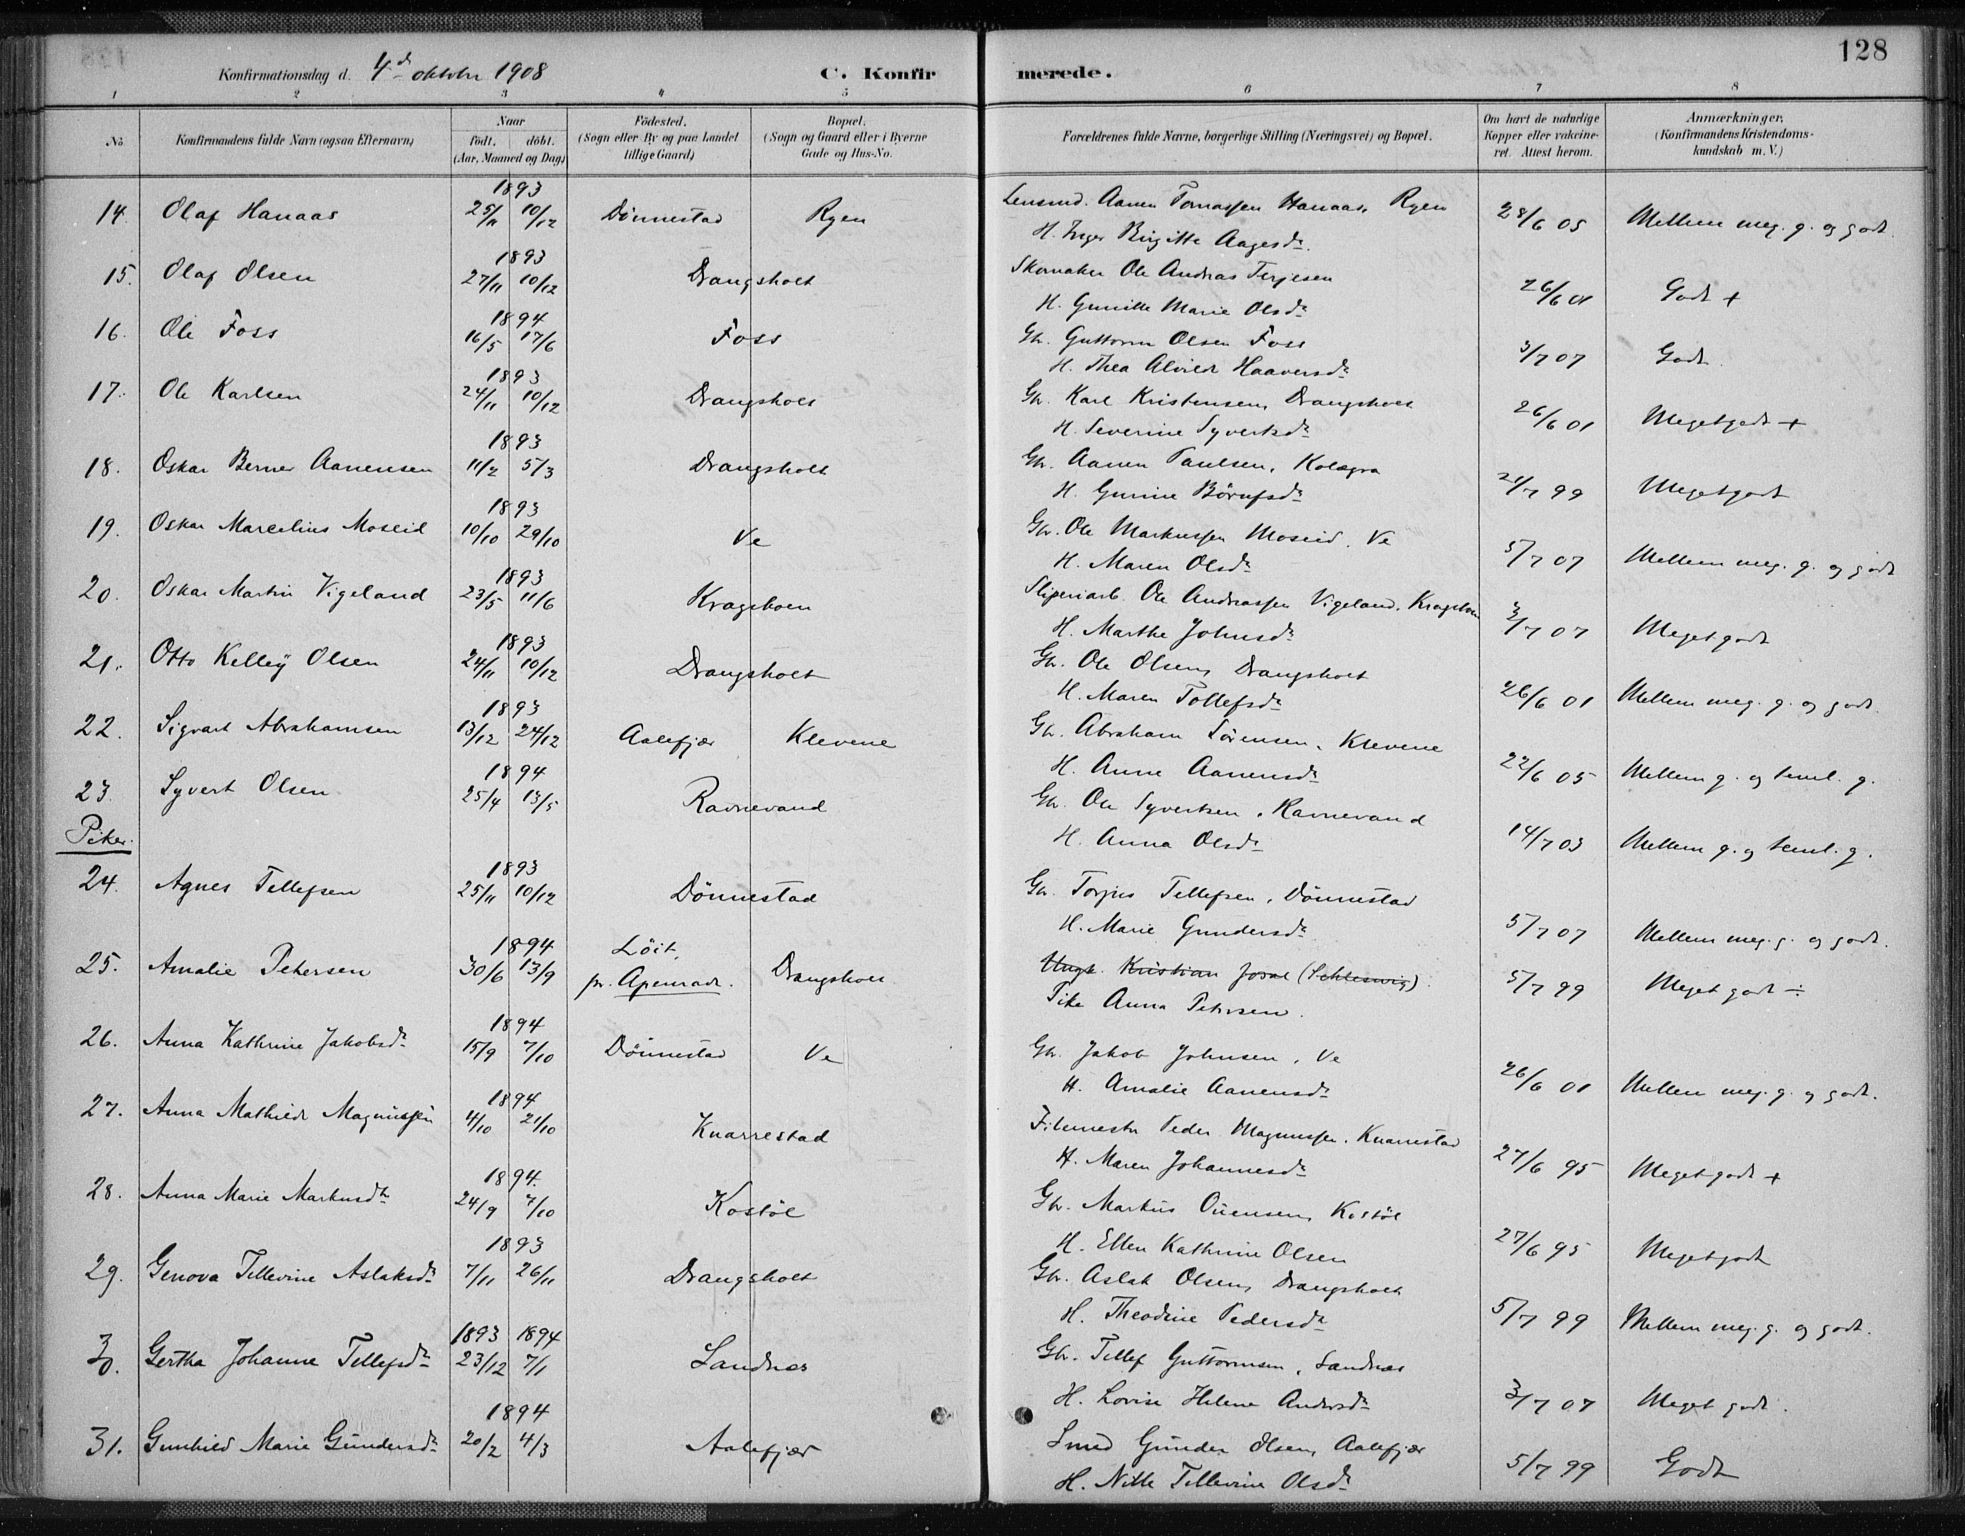 128
Konfirmationsdag d. 4de oktober 1908 C. Konfirmerede.
1 2 3 4 5 6 7 8
No Konfirmandens fulde Navn (ogsaa Efternavn) Naar født. døbt. (Aar, Maaned og Dag) Födested. (Sogn eller By og paa Landet tillige Gaard) Bopæl. (Sogn og Gaard eller i Byerne Gade og Hus-No. Forældrenes fulde Navne, borgerlige Stilling (Næringsvei) og Bopæl. Om havt de naturlige Kopper eller vakcineret. Attest herom. Anmærkninger. (Konfirmandens Kristendomskundskab m. V.)
1893
14. Olaf Hanaas 25/11 10/12 Dönnestad Ryen Lensmd. Aanen Tomassen Hanaas, Ryen 28/6 05 Mellem meg. g. og godt.
H. Inger Birgitte Aagesdr.
1893
15. Olaf Olsen 27/11 10/12 Drangsholt Skomaker Ole Andreas Terjesen 26/6 01 Godt +
H. Gunille Marie Olsdr
1894
16. Ole Foss 16/5 17/6 Foss Gbr. Guttorm Olsen Foss 3/7 07 Godt.
H. Thea Alvilde Haaversdr
1893
17. Ole Karlsen 24/11 10/12 Drangsholt Gbr. Karl Kristensen, Drangsholt 26/6 01 Megetgodt +
H. Severine Syvertsdr
1893
18. Oskar Berner Aanensen 11/2 5/3 Drangsholt Gbr. Aanen Paulsen, 21/7 99 Megetgodt
H. Gurine
1893
19. Oskar Marcelius Moseid 10/10 29/10 Ve Gbr. Ole Markussen Moseid, Ve 5/7 07 Mellem meg. g. og godt
H. Maren Olsdr
1893
20. Oskar Martin Vigeland 23/5 11/6 Kragsboen Sliperiarb. Ole Andreassen Vigeland, Kragsboen 3/7 07 Meget godt
H. Marthe Johnsdr
1893
21. Otto Kelley Olsen 24/11 10/12 Drangsholt Gbr. Ole Olsen, Drangsholt 26/6 01 Mellem meg. g. og godt.
H. Maren Tollefsdr
1893
22. Sigvart Abrahamsen 13/12 24/12 Aalefjær Klevene Gbr. Abraham Sörensen, Klevene 22/6 05 Mellem g. og teml. g.
H. Anne Aanensdr
1894
23. Syvert Olsen 25/4 13/5 Ravnevand Gbr. Ole Syvertsen, Ravnevand 14/7 03 Mellem g. og teml. g.
H. Anna Olsdr
Piker.
1893
24. Agnes Tellefsen 25/11 10/12 Dönnestad Gbr. Torjus Tellefsen, Dönnestad 5/7 07 Mellem meg. g. og godt.
H. Marie Gundersdr
1894
25. Amalie Petersen 30/6 13/9 Löit, pr. Apenrade. Drangsholt Ungk. Kristian (Schleswig). 5/7 99 Meget godt ÷
Pike Anna Petersen.
1894
26. Anna Kathrine Jakobsdr 15/9 7/10 Dönnestad Ve Gbr. Jakob Johnsen, Ve 26/6 01 Mellem meg. g. og godt.
H. Amalie Aanensdr
1894
27. Anna Mathilde Magnussen 4/10 21/10 Knarrestad Peder Magnussen, Knarrestad 27/6 95 Megetgodt +
H. Maren Johannesdr
1894.
28. Anna Marie Markusdtr 24/9 7/10 Kostöl Gbr. Markus Ouensen, Kostöl 27/6 95 Megetgodt
H. Ellen Kathrine Olsen
1893
29. Genova Tellevine Aslaksdr 7/11 26/11 Drangsholt Gbr. Aslak Olsen, Drangsholt 5/7 99 Mellem meg. g. og godt.
H. Theodine Pedersdr
1893 1894
30. Gertha Johanne Tellefsdr 23/12 7/1 Sandnes Gbr. Tellef Guttormsen, Sandnes 3/7 07 Meget godt.
H. Lovise Helene Andersdr
1894
31. Gunhild Marie Gundersdr 20/2 4/3 Aalefjær Smed Gunder Olsen, Aalefjær 5/7 99 Godt
H. Nille Tellevine Olsdr